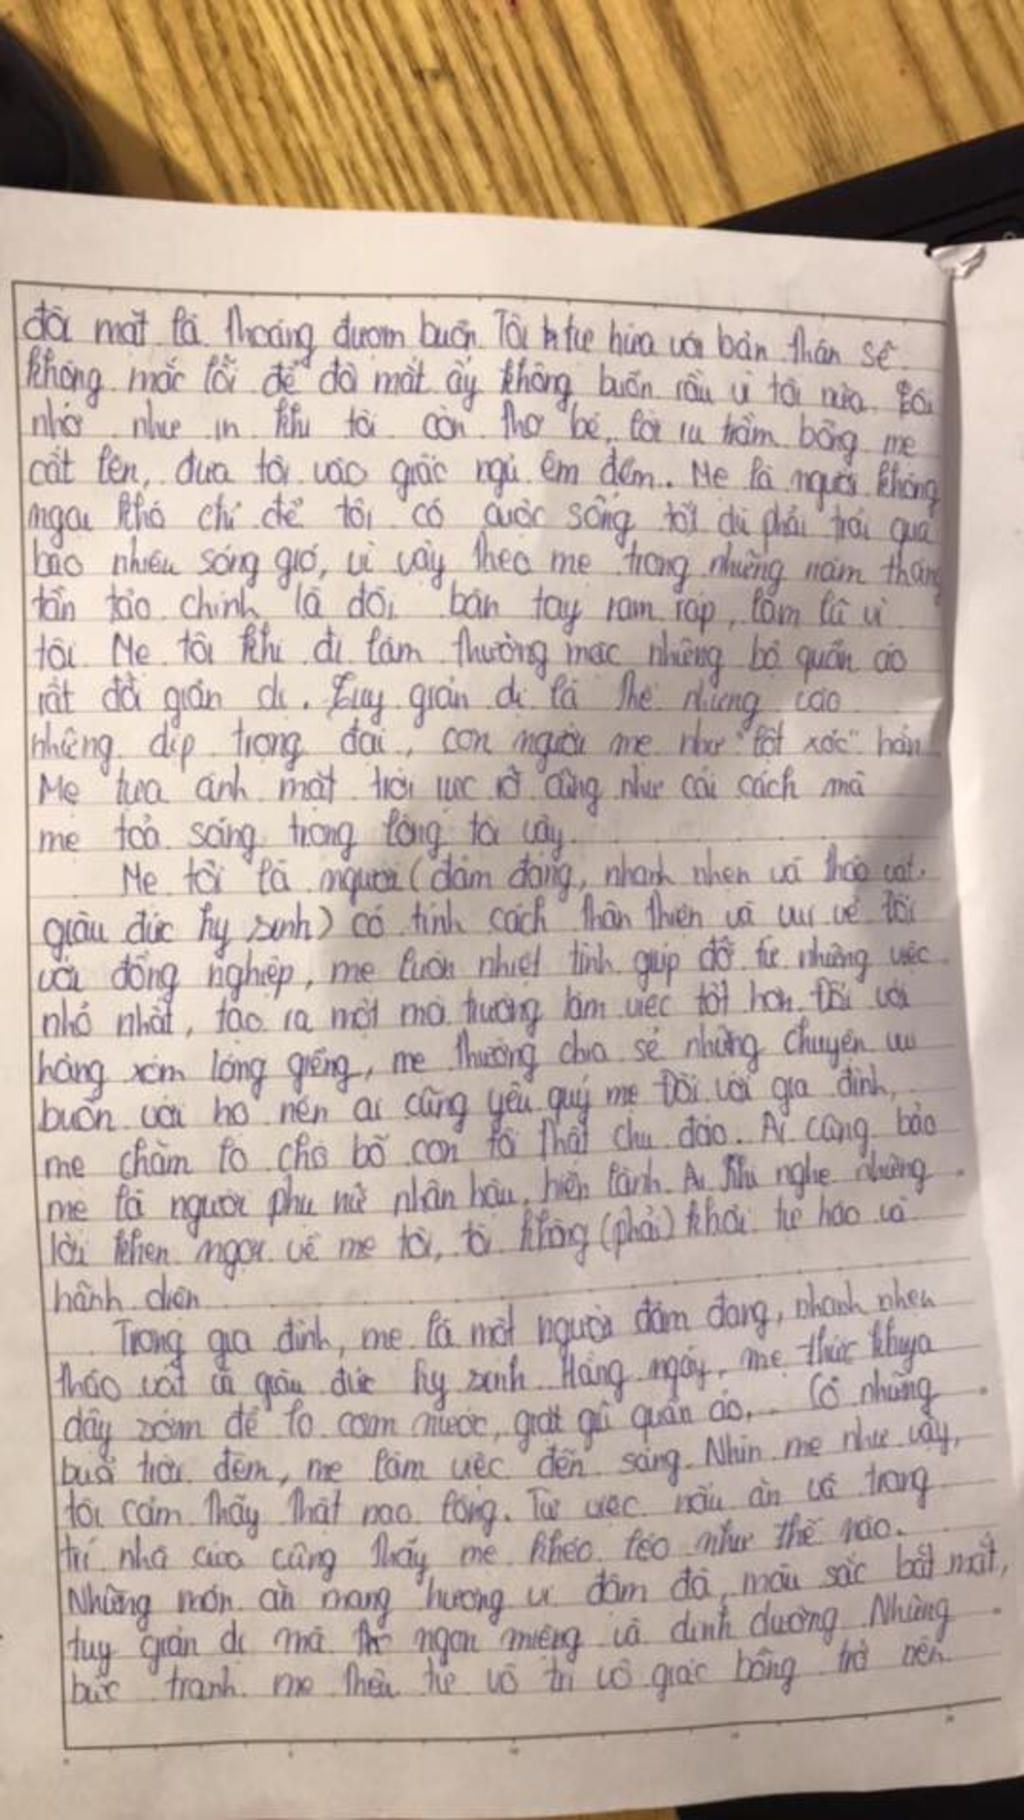 đôi mắt lá thoáng đượm buồn. Tôi tự hứa với bản thân sẽ
không mắc lỗi để đôi mắt ấy không buồn rầu vì tôi nữa. Tôi
nhớ như in khi tôi còn thơ bé, lời ru trầm bổng mẹ
cất lên, đưa tôi vào giấc ngủ êm đềm. Mẹ là người không
ngại khó chỉ để tôi có cuộc sống tốt dù phải trải qua
bao nhiêu sóng gió, vì vậy theo mẹ trong những năm tháng
tần tảo chính là đôi bàn tay ram ráp, lam lũ vì
tôi. Mẹ tôi khi đi làm thường mặc những bộ quần áo
rất đỗi giản dị. Tuy giản dị là thế nhưng vào
những dịp trọng đại, con người mẹ như "lột xác" hẳn.
Mẹ tựa ánh mặt trời rực rỡ cũng như cái cách mà
mẹ toả sáng trong lòng tôi vậy.
Mẹ tôi là người (đảm đang, nhanh nhẹn và tháo vát,
giàu đức hy sinh) có tính cách thân thiện và vui vẻ. Đối
với đồng nghiệp, mẹ luôn nhiệt tình giúp đỡ từ những việc
nhỏ nhất, tạo ra một môi trường làm việc tốt hơn. Đối với
hàng xóm láng giềng, mẹ thường chia sẻ những chuyện vui
buồn với họ nên ai cũng yêu quý mẹ. Đối với gia đình,
mẹ chăm lo cho bố con tôi thật chu đáo. Ai cũng bảo
mẹ là người phụ nữ nhân hậu, hiền lành. Ai khi nghe những
lời khen ngợi về mẹ tôi, tôi không (phải) khỏi tự hào và
hãnh diện
Trong gia đình, mẹ là một người đảm đang, nhanh nhẹn
tháo vát và giàu đức hy sinh. Hàng ngày, mẹ thức khuya
dậy sớm để lo cơm nước, giặt giũ quần áo,... Có những
buổi trời đêm, mẹ làm việc đến sáng. Nhìn mẹ như vậy,
tôi cảm thấy thật nao lòng. Từ việc nấu ăn và trang
trí nhà cửa cũng thấy mẹ khéo léo như thế nào.
Những món ăn mang hương vị đậm đà, màu sắc bắt mắt,
tuy giản dị mà ngon miệng và dinh dưỡng. Những
bức tranh mẹ thêu từ vô tri vô giác bỗng trở nên